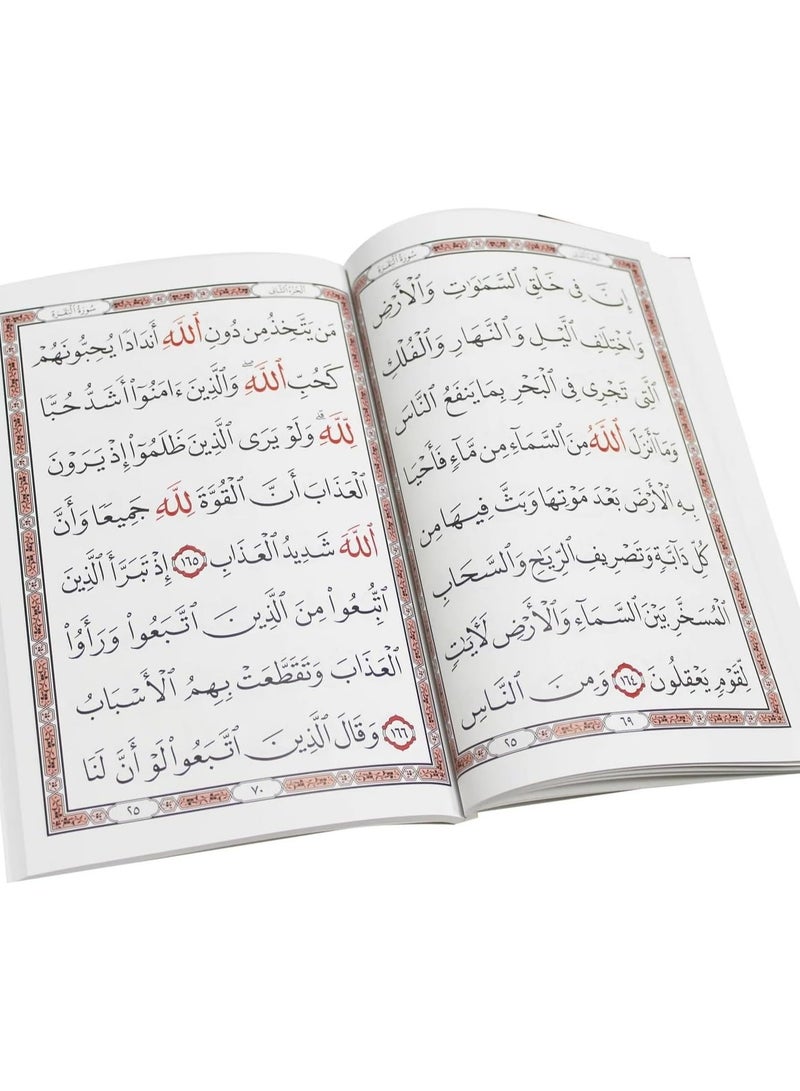 سُورَةُ البَقَرَةِ
الجُزْءُ الثَّانِي
إِنَّ فِي خَلْقِ ٱلسَّمَٰوَٰتِ وَٱلْأَرْضِ
وَٱخْتِلَٰفِ ٱلَّيْلِ وَٱلنَّهَارِ وَٱلْفُلْكِ
ٱلَّتِي تَجْرِي فِي ٱلْبَحْرِ بِمَا يَنفَعُ ٱلنَّاسَ
وَمَآ أَنزَلَ ٱللَّهُ مِنَ ٱلسَّمَآءِ مِن مَّآءٍ فَأَحْيَا
بِهِ ٱلْأَرْضَ بَعْدَ مَوْتِهَا وَبَثَّ فِيهَا مِن
كُلِّ دَآبَّةٍ وَتَصْرِيفِ ٱلرِّيَٰحِ وَٱلسَّحَابِ
ٱلْمُسَخَّرِ بَيْنَ ٱلسَّمَآءِ وَٱلْأَرْضِ لَأٓيَٰتٍ
لِّقَوْمٍ يَعْقِلُونَ ١٦٤ وَمِنَ ٱلنَّاسِ
٦٩
٢٥
الجُزْءُ الثَّانِي
سُورَةُ البَقَرَةِ
مَن يَتَّخِذُ مِن دُونِ ٱللَّهِ أَندَادًا يُحِبُّونَهُمْ
كَحُبِّ ٱللَّهِۖ وَٱلَّذِينَ ءَامَنُوٓا۟ أَشَدُّ حُبًّا
لِّلَّهِۗ وَلَوْ يَرَى ٱلَّذِينَ ظَلَمُوٓا۟ إِذْ يَرَوْنَ
ٱلْعَذَابَ أَنَّ ٱلْقُوَّةَ لِلَّهِ جَمِيعًا وَأَنَّ
ٱللَّهَ شَدِيدُ ٱلْعَذَابِ ١٦٥ إِذْ تَبَرَّأَ ٱلَّذِينَ
ٱتُّبِعُوا۟ مِنَ ٱلَّذِينَ ٱتَّبَعُوا۟ وَرَأَوُا۟
ٱلْعَذَابَ وَتَقَطَّعَتْ بِهِمُ ٱلْأَسْبَابُ
١٦٦ وَقَالَ ٱلَّذِينَ ٱتَّبَعُوا۟ لَوْ أَنَّ لَنَا
٧٠
٢٥